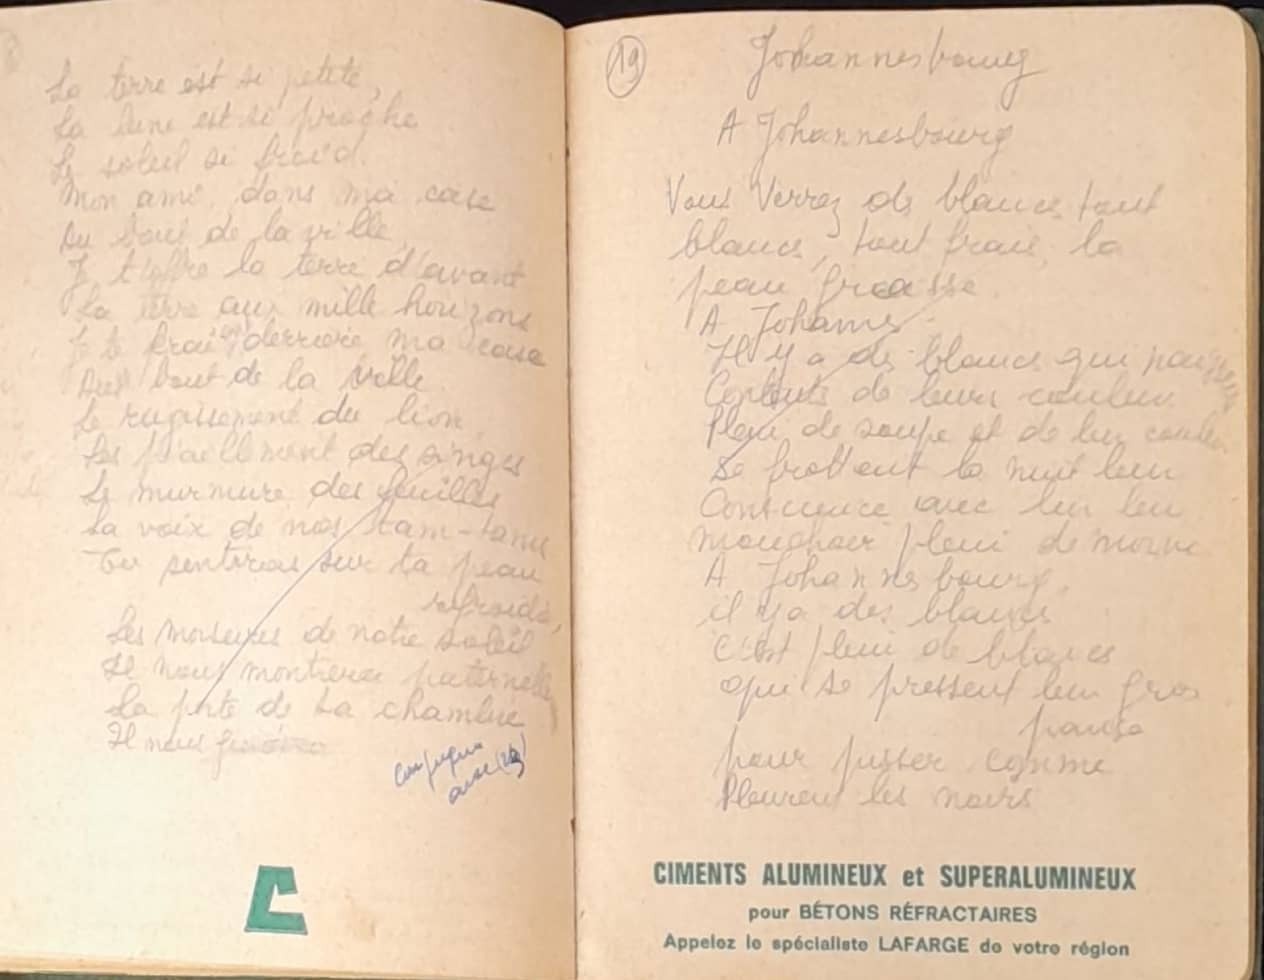 La terre est si petite,
La lune est si proche
Le soleil si froid.
Mon ami, dans ma case
Au bout de la ville,
Je t'offre la terre d'avant
La terre aux mille horizons
derrière ma case
Au bout de la ville
Le rugissement du lion
Les piaillement des singes
Le murmure des feuilles
La voix de nos tam-tams
Tu sentiras sur ta peau
refroidie,
Les morsures de notre soleil
Il nous montrera paternelle
La porte de ta chambre
Il nous
avec
C
19
Johannesbourg
A Johannesbourg
Vous verrez des blancs tout
blancs, tout frais, la
peau grasse
A Johannes
Il y a des blancs qui
Contents de leurs couleur
Plein de soupe et de leur couleur
Se frottent la nuit leur
Conscience avec leur leu
mouchoir plein de morve
A Johannesbourg,
il y a des blancs
C'est plein de blancs
qui se pressent leur gros
panse
pour pisser comme
Pleurent les noirs
CIMENTS ALUMINEUX et SUPERALUMINEUX
pour BÉTONS RÉFRACTAIRES
Appelez le spécialiste LAFARGE de votre région